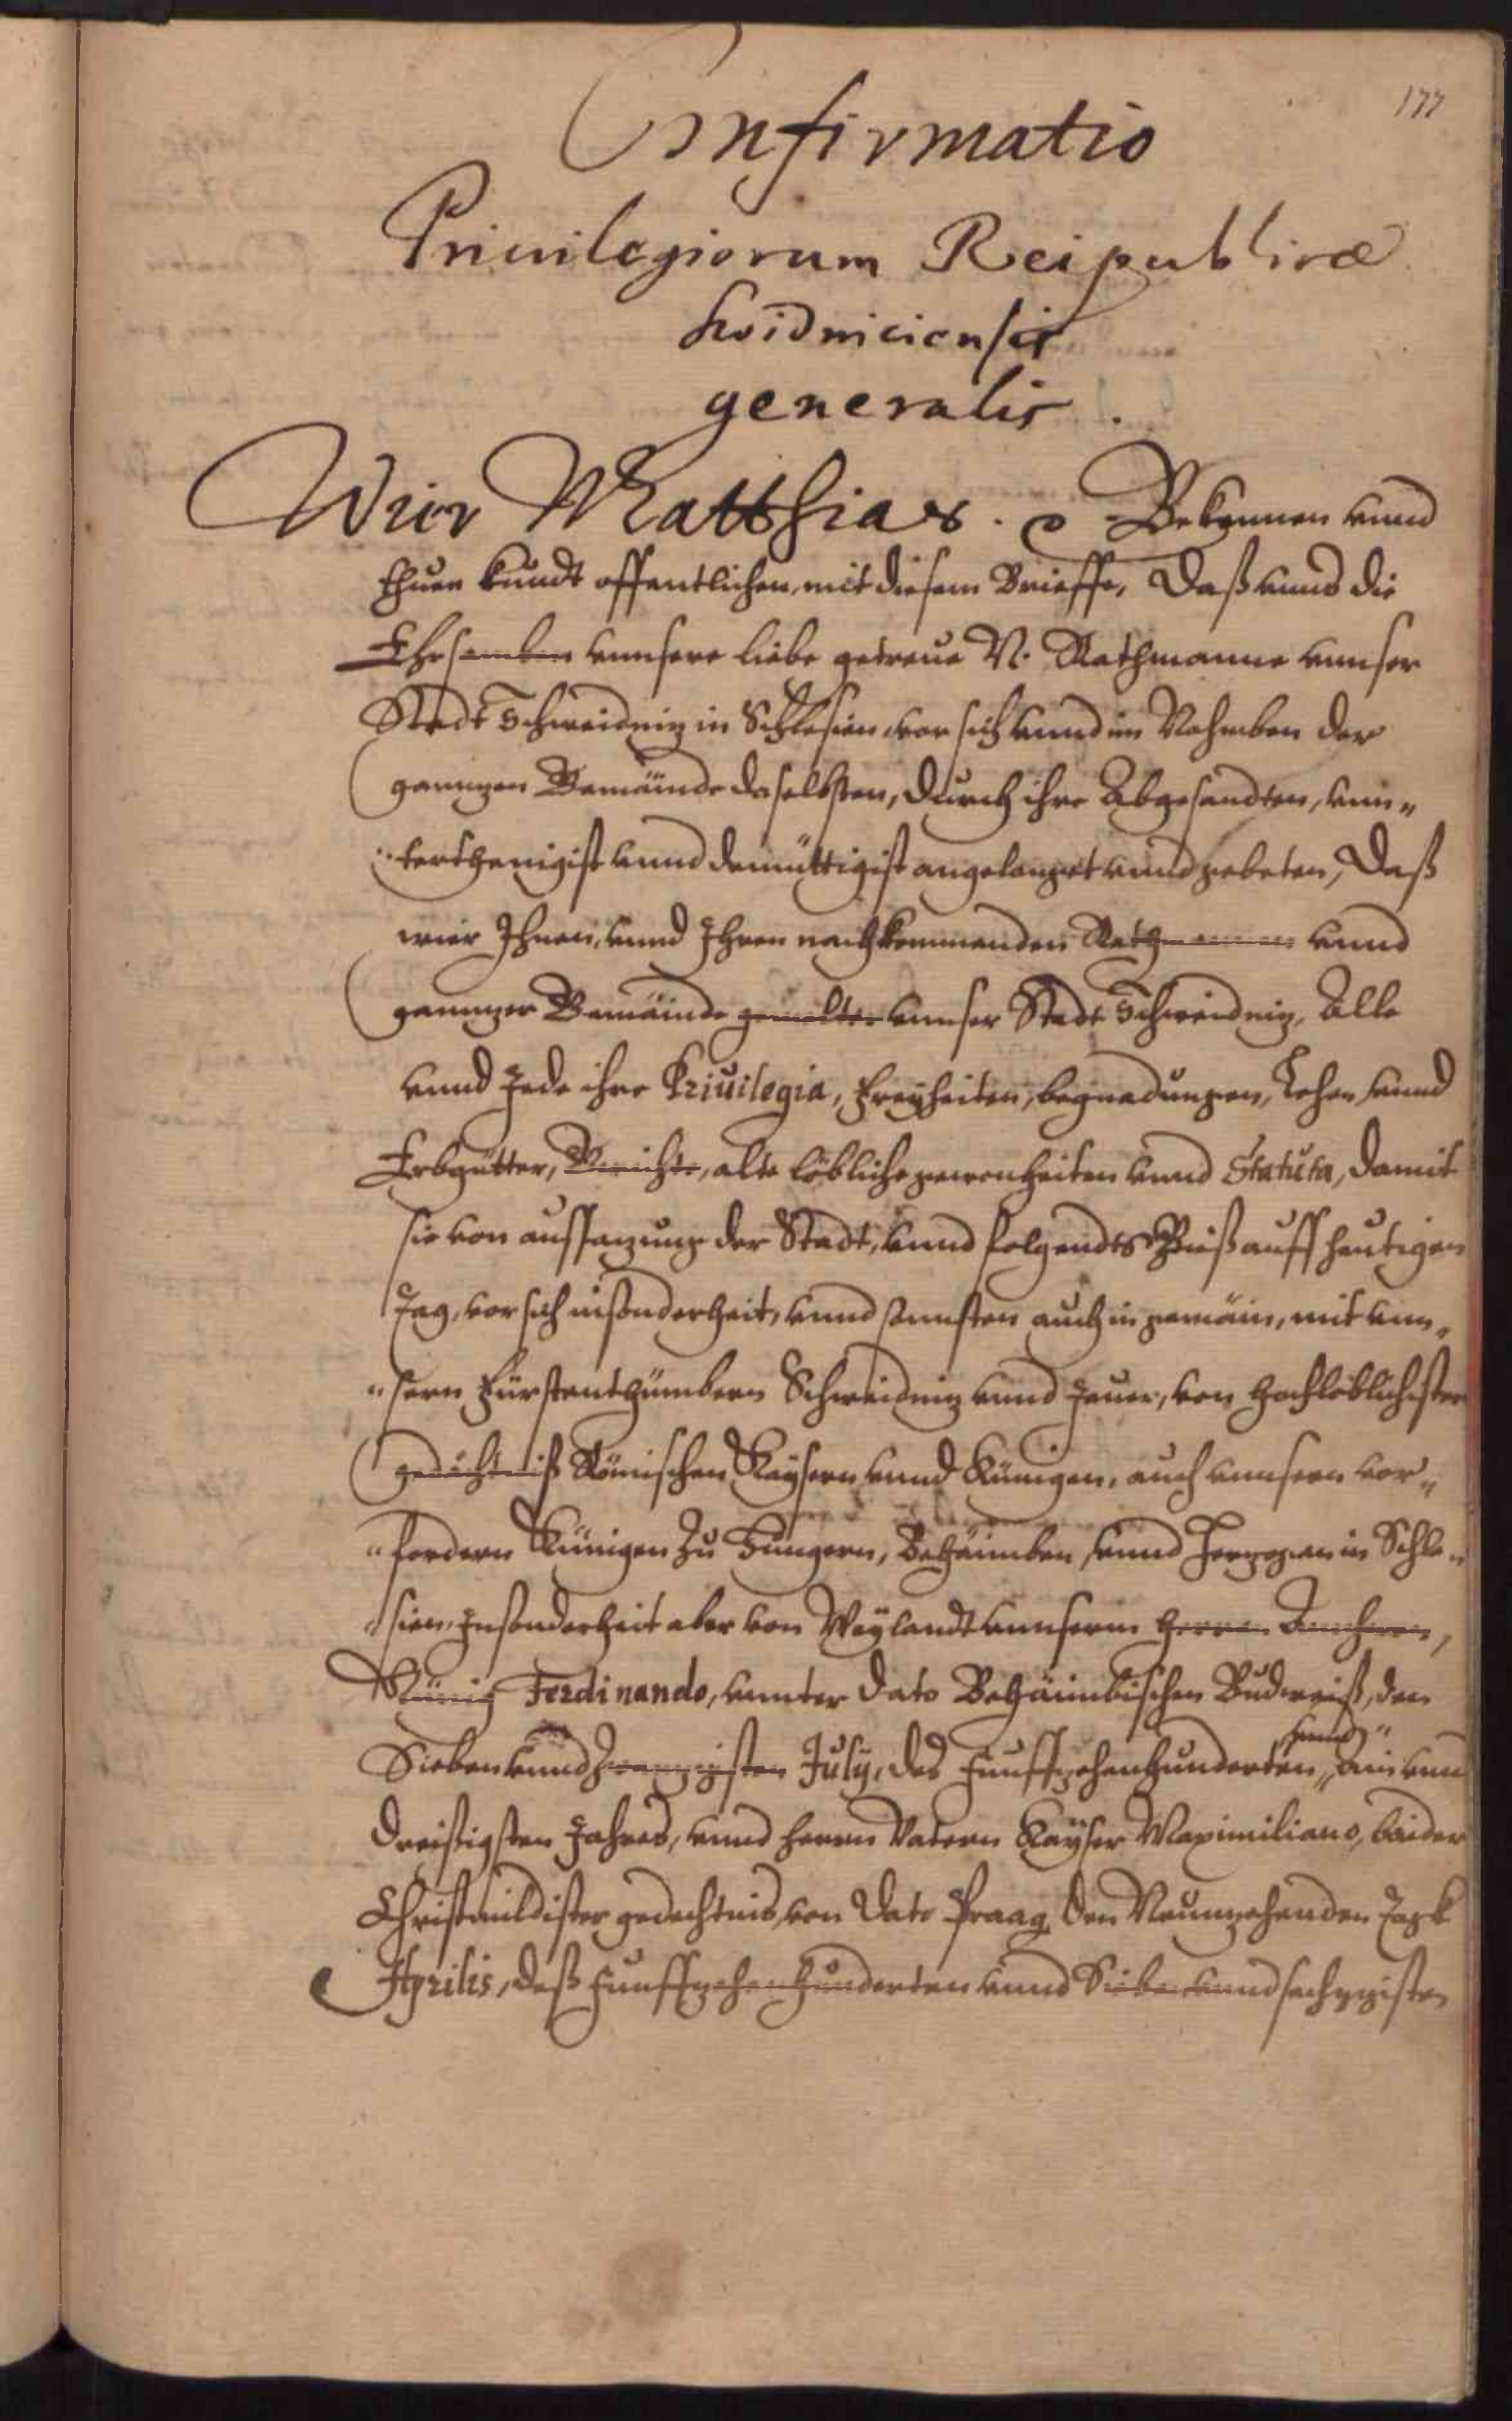 177
Confirmatio
Priuilegiorum Reipublicæ
Suidniciensis
generalis.
Wier Matthias. Bekennen vnnd
thuen kundt offentlichen, mit diesem Brieffe, Daß vnns die
Ehrsamben vnnsere liebe getreue N. Rathmanne vnnser
Stadt Schweidniz in Schlesien, vor sich vnnd im Nahmben der
gannzen Gemäinde daselbsten, durch ihre Abgesandten, vnn„
„terthenigist vnnd demüttigist angelanget vnnd gebeten, Daß
wier Ihnen, vnnd Ihren nachkommenden Rathmannen vnnd
gannzer Gemäinde gemelter vnnser Stadt Schweidniz, Alle
vnnd Jede ihre Priuilegia, Freyheiten, begnadungen, Lehen vnnd
Erbgütter, Gericht, alte löbliche gewonheiten vnnd Statuta, damit
sie von aussazung der Stadt, vnnd folgendts Bieß auff heutigen
Tag, vor sich insonderheit, vnnd sonnsten auch in gemäin, mit vnn„
„sern Fürstenthümbern Schweidniz vnnd Jauer, von hochlöblichster
gedächtniß Römischen Kaysern vnnd Künigen, auch vnnsern vor„
„fordern Künigen zu Hungern, Behäimben, vnnd Herzogen in Schle„
„sien, Insonderheit aber von Weylandt vnnserm Herrn Anherrn,
Künig Ferdinando, vnnter dato Behäimbischen Budweiß, den
Sieben vnnd Zwanzigsten July, des Funffzehenhunderten, vnnd„
„ain vnnd
dreißigsten Jahres, vnnd herrn Vatern Kayser Maximiliano, baider
Christmildister gedechtnis, von dato Praag den Neunzehenden Tag
Aprilis, deß Funffzehenhunderten vnnd Sieben vnnd sechzigisten